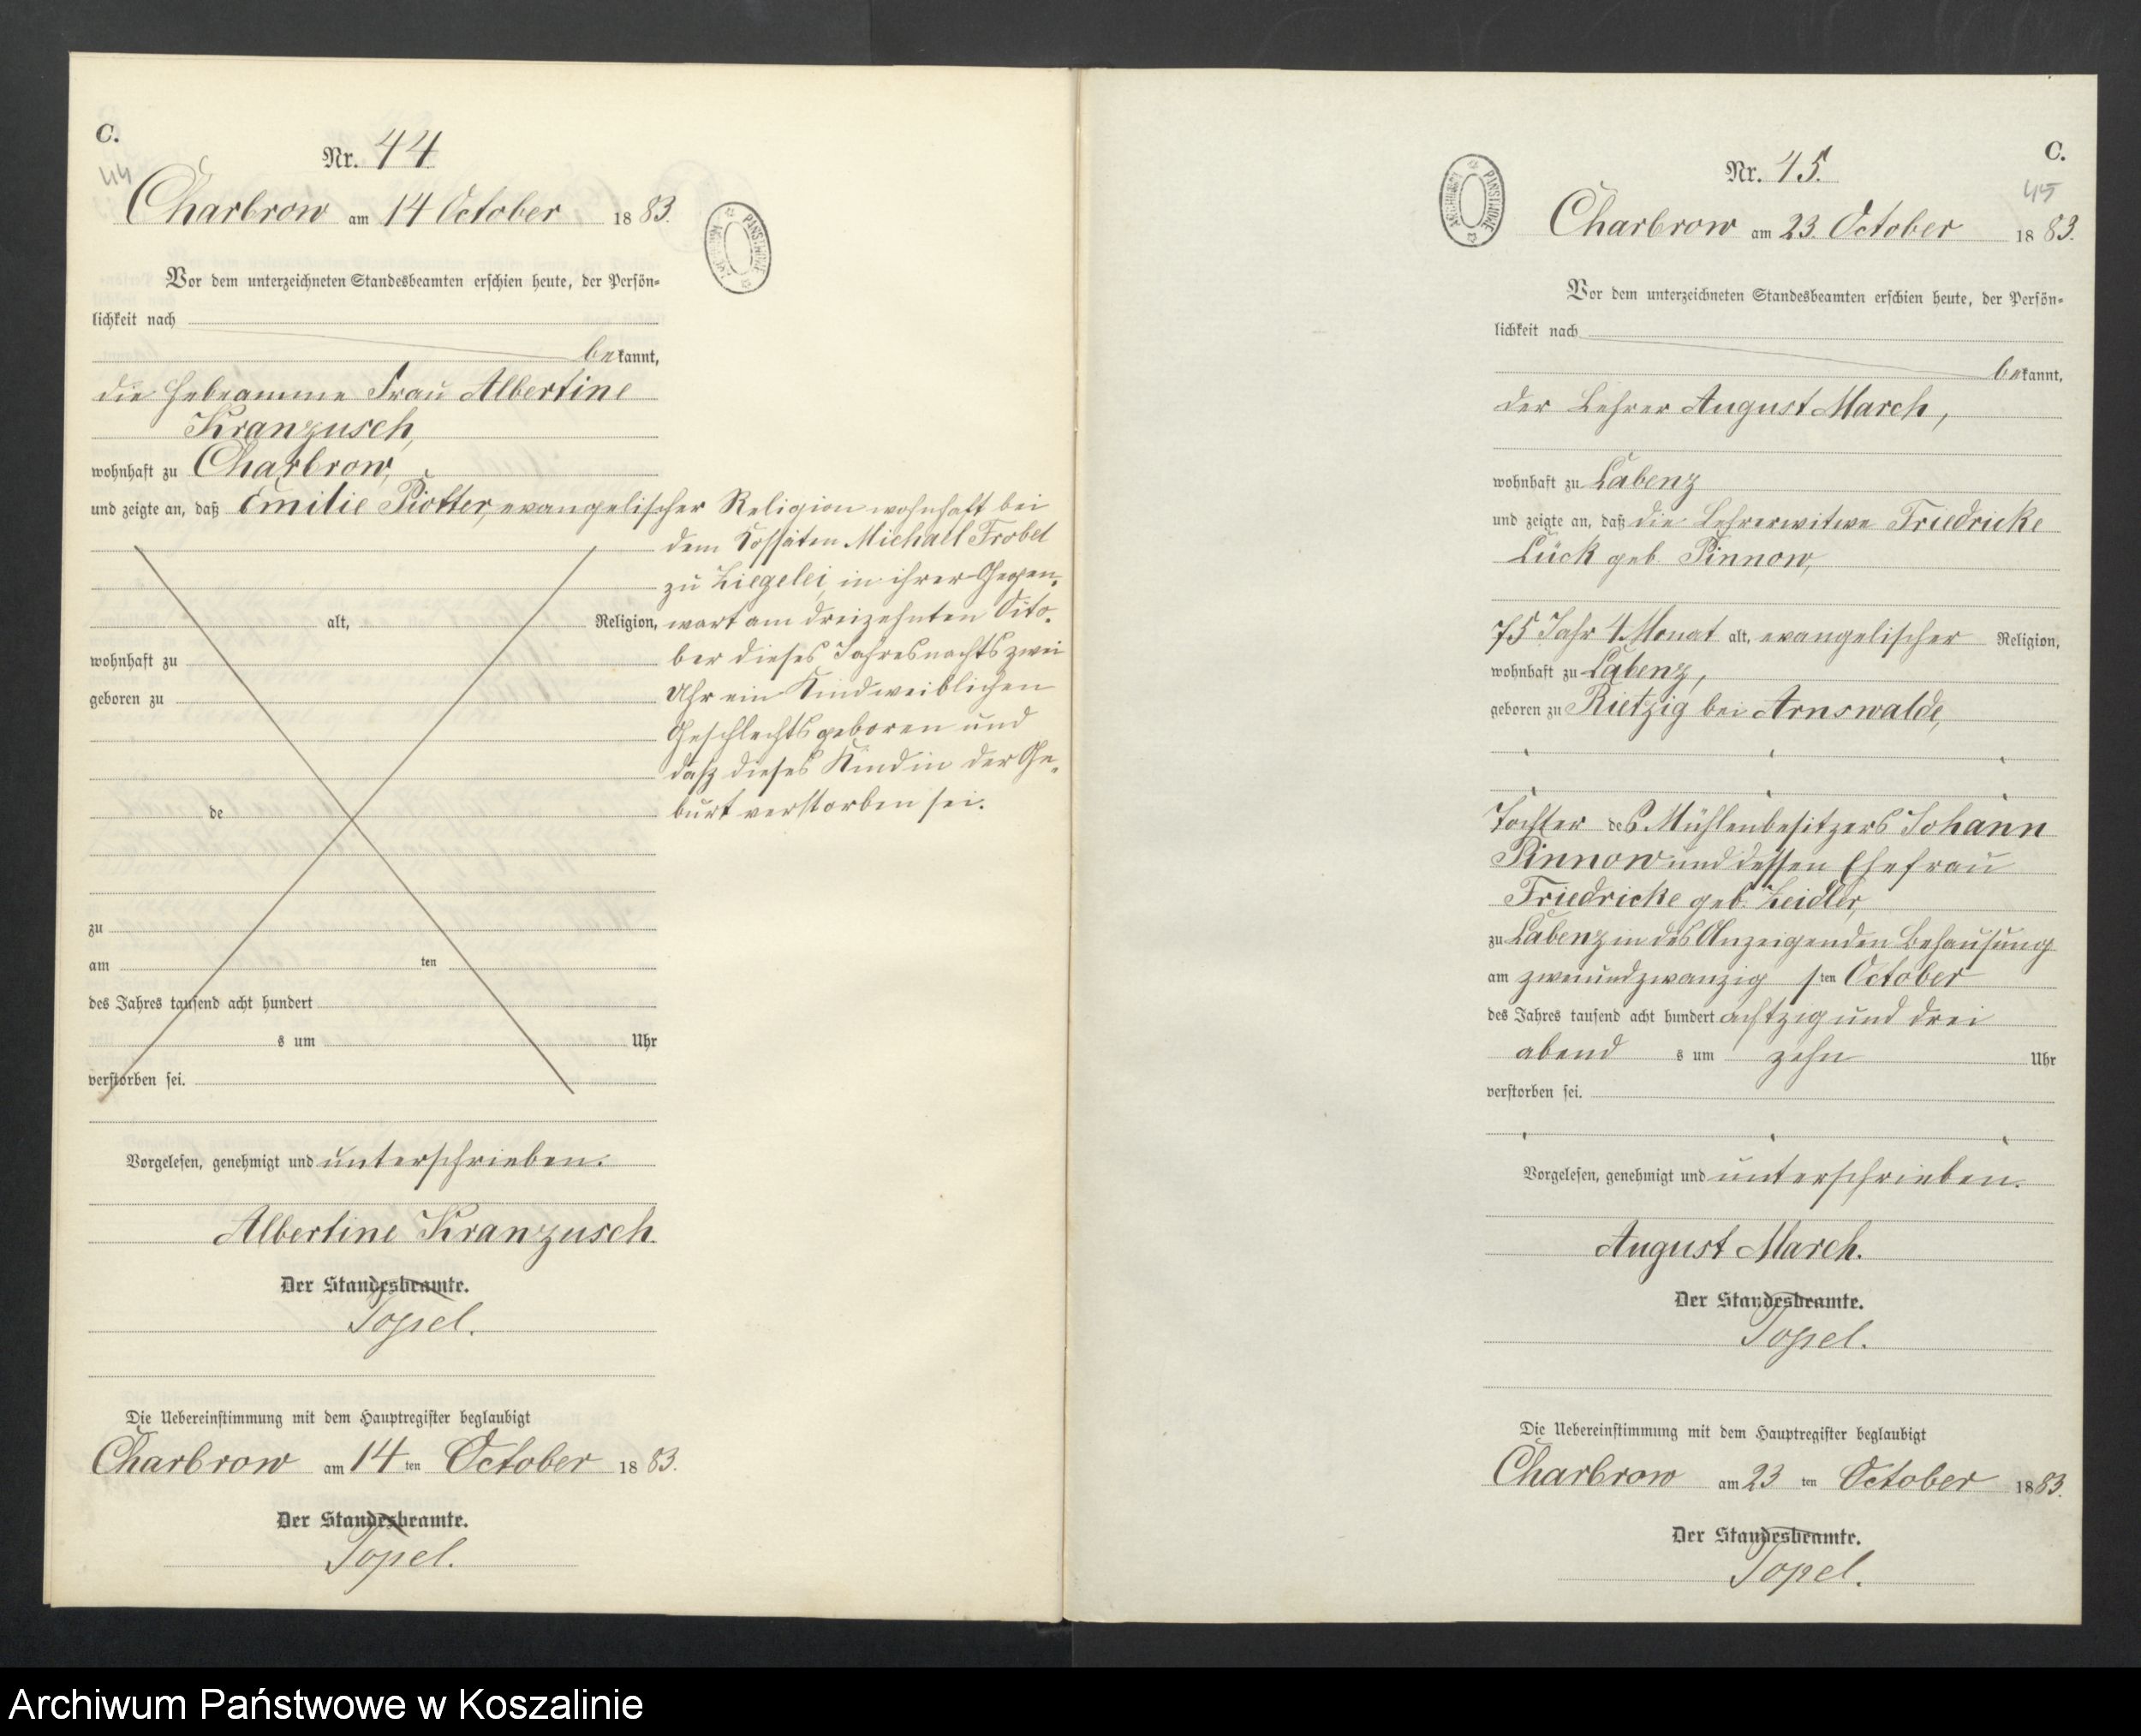 C.
44
Nr. 44
Charbrow am 14 October 1883.
ARCHIWUM PAŃSTWOWE
Vor dem unterzeichneten Standesbeamten erschien heute, der Persön=
lichkeit nach
bekannt,
die Hebeamme Frau Albertine
Kranzusch,
wohnhaft zu Charbrow,
und zeigte an, daß Emilie Piotter, evangelischer Religion wohnhaft bei
dem Kossäten Michael Frobel
zu Ziegelei, in ihrer Gegen=
alt, Religion, wart am dreizehnten Octo=
wohnhaft zu ber dieses Jahres nachts zwei
geboren zu Uhr ein Kind weiblichen
Geschlechts geboren und
daß dieses Kind in der Ge=
de burt verstorben sei.
zu
am ten
des Jahres tausend acht hundert
s um Uhr
verstorben sei.
Vorgelesen, genehmigt und unterschrieben.
Albertine Kranzusch.
Der Standesbeamte.
Topel.
Die Uebereinstimmung mit dem Hauptregister beglaubigt
Charbrow am 14 ten October 1883.
Der Standesbeamte.
Topel.
C.
45
Nr. 45.
Charbrow am 23. October 1883.
ARCHIWUM PAŃSTWOWE
Vor dem unterzeichneten Standesbeamten erschien heute, der Persön=
lichkeit nach
bekannt,
der Lehrer August March,
wohnhaft zu Labenz
und zeigte an, daß die Lehrerwitwe Friedricke
Lück geb. Pinnow,
75 Jahr 4 Monat alt, evangelischer Religion,
wohnhaft zu Labenz,
geboren zu Rietzig bei Arnswalde,
Tochter des Mühlenbesitzers Johann
Pinnow und dessen Ehefrau
Friedricke geb. Zeidler,
zu Labenz in des Anzeigenden Behausung
am zweiundzwanzig sten October
des Jahres tausend acht hundert achtzig und drei
abend s um zehn Uhr
verstorben sei.
Vorgelesen, genehmigt und unterschrieben.
August March.
Der Standesbeamte.
Topel.
Die Uebereinstimmung mit dem Hauptregister beglaubigt
Charbrow am 23 ten October 1883.
Der Standesbeamte.
Topel.
Archiwum Państwowe w Koszalinie